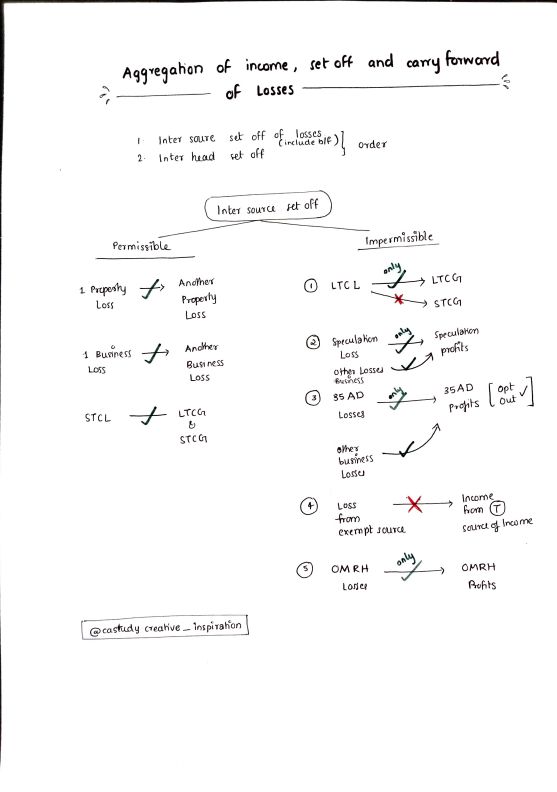 Aggregation of income, set off and carry forward
of Losses
1. Inter soure set off of losses
(include b/f)
2. Inter head set off
order
Inter source set off
Permissible
1 Property
Loss
Another
Property
Loss
1 Business
Loss
Another
Business
Loss
STCL
LTCG
&
STCG
Impermissible
1 LTCL
only
LTCG
STCG
2 Speculation
Loss
only
Speculation
profits
other Losses
Business
3 35 AD
Losses
only
35AD
Profits
Opt
Out
other
business
Losses
4 Loss
from
exempt source
Income
from T
source of Income
5 OMRH
Losses
only
OMRH
Profits
@castudy creative_inspiration